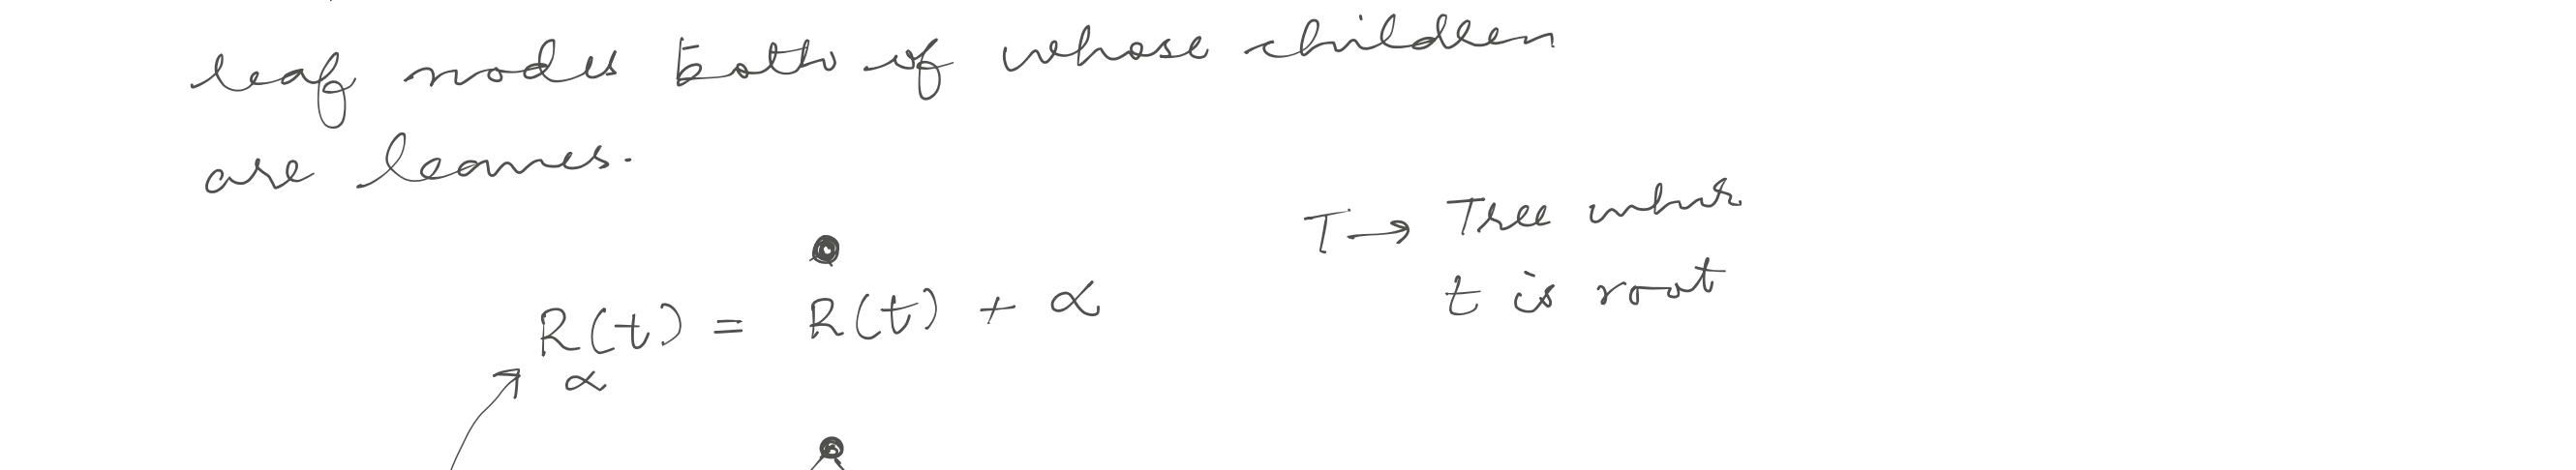 leaf nodes both of whose children
are leaves.
T → Tree whose
t is root
R_α(t) = R(t) + α